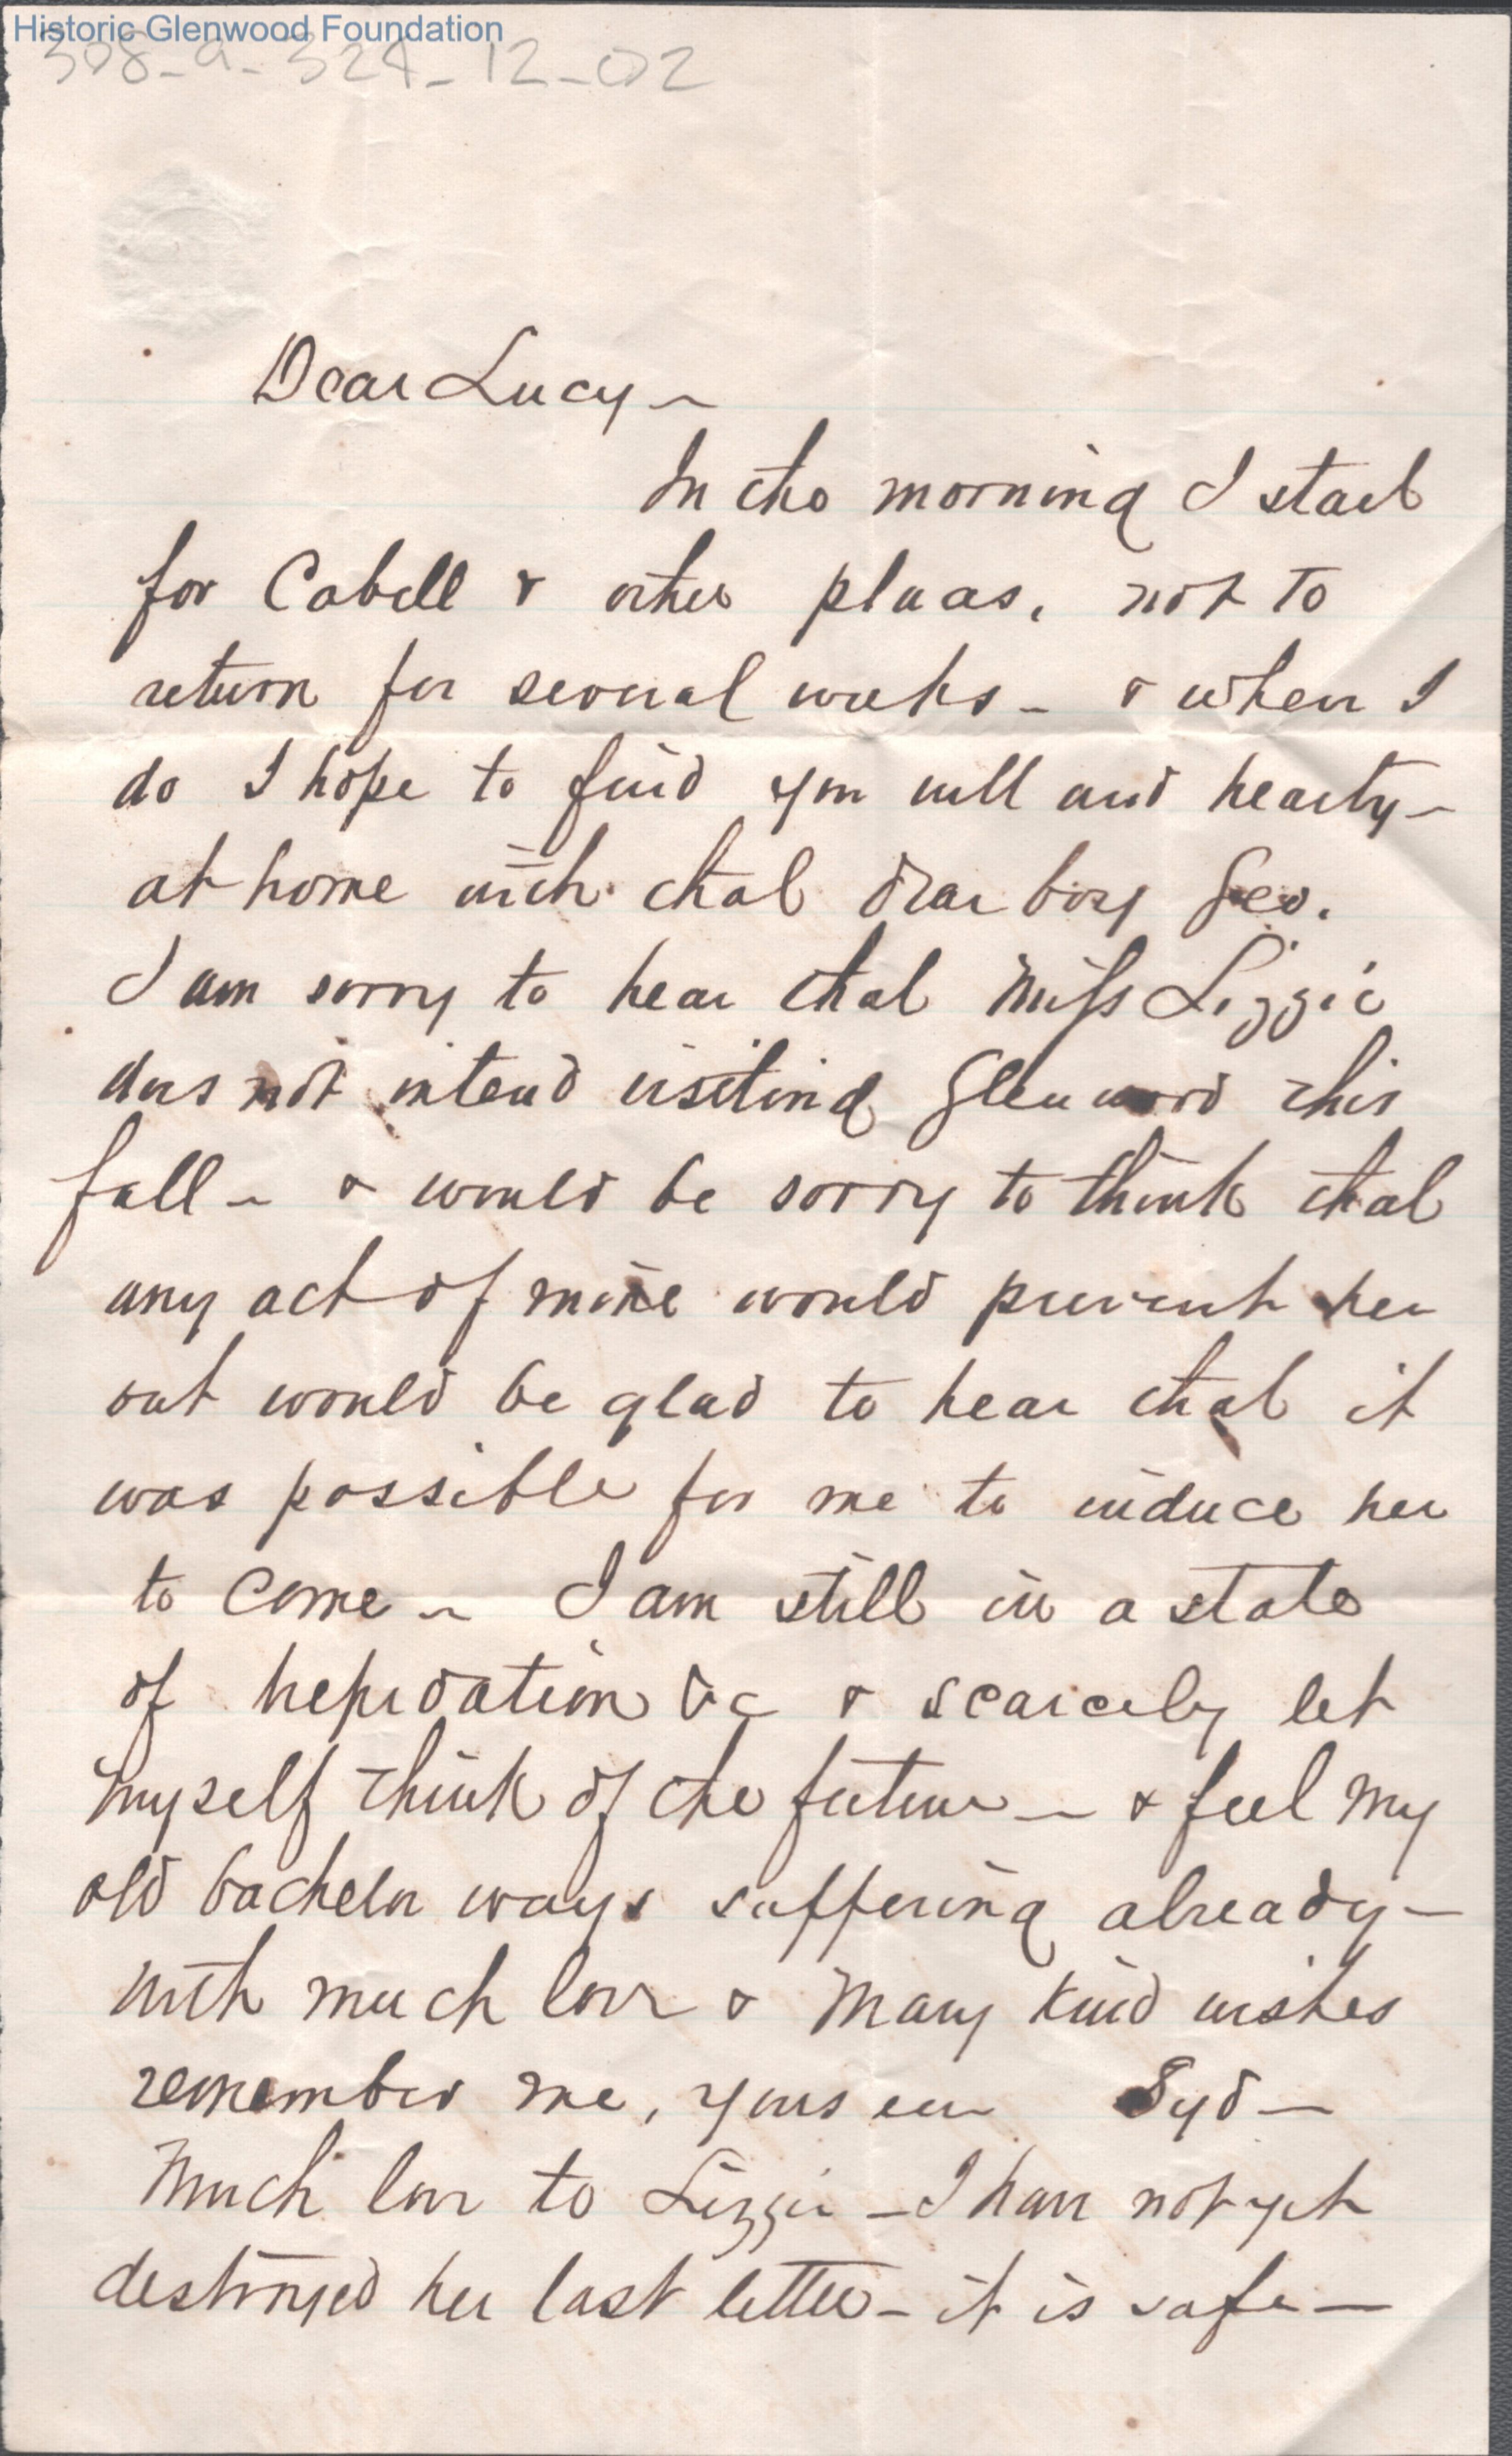 Historic Glenwood Foundation
308-a-324-12-02
Dear Lucy ~
In the morning I start
for Cabell & other places, not to
return for several weeks - & when I
do I hope to find you well and hearty -
at home with that dear boy Geo.
I am sorry to hear that Miss Lizzie
does not intend visiting Glenwood this
fall - & would be sorry to think that
any act of mine would prevent her
but would be glad to hear that it
was possible for me to induce her
to come - I am still in a state
of trepidation &c & scarcely let
myself think of the future - & feel my
old bachelor ways suffering already -
With much love & many kind wishes
remember me, yours ever Syd -
Much love to Lizzie - I have not yet
destroyed her last letter - it is safe -